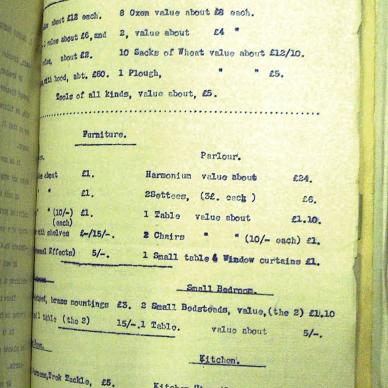 about £12 each. 8 Oxen value about £8 each.
value about £6, and 2, value about £4 "
about £2. 10 Sacks of Wheat value about £12/10.
with hood, abt. £60. 1 Plough, " " £5.
Tools of all kinds, value about, £5.
Furniture.
Parlour.
about £1. Harmonium value about £24.
" £1. 2Settees, (3£. each ) £6.
" " (10/- each) £1. 1 Table value about £1.10.
with shelves £-/15/-. 2 Chairs " " (10/- each) £1.
Effects) 5/-. 1 Small table & Window curtains £1.
Small Bedroom.
brass mountings £3. 2 Small Bedsteads, value,(the 2) £1,10
table (the 2) 15/-. 1 Table. value about 5/-.
Kitchen.
Trek Tackle, £5. Kitchen